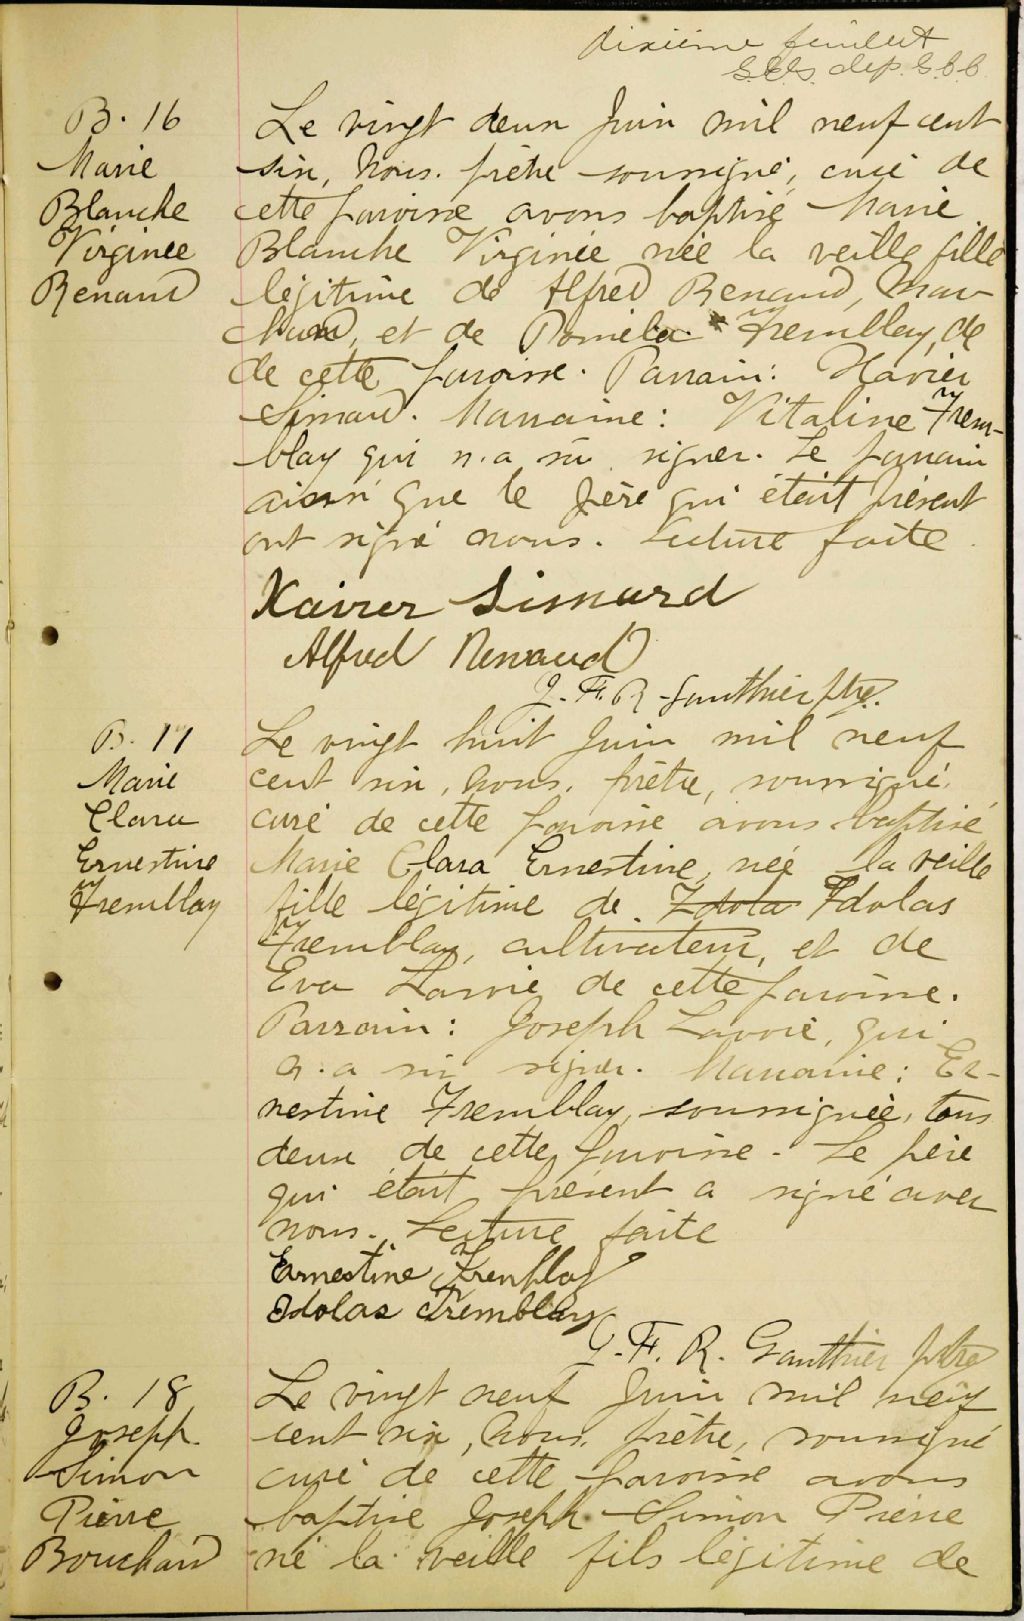 dixième feuillet
dep. G.C.C.
B. 16
Marie
Blanche
Virginée
Renaud
Le vingt deux Juin mil neuf cent
six, Nous. prêtre soussigné, curé de
cette paroisse avons baptisé Marie
Blanche Virginée née la veille fille
légitime de Alfred Renaud, Mar-
chand, et de Roméla Tremblay, de
de cette paroisse. Parrain: Xavier
Simard. Marraine: Vitaline Trem-
blay qui n.a su signer. Le parrain
ainsi que le père qui était présent
ont signé nous. Lecture faite.
Xavier Simard
Alfred Renaud
J. F. R. Gauthier ptre.
B. 17
Marie
Clara
Ernestine
Tremblay
Le vingt huit Juin mil neuf
cent six, Nous. prêtre, soussigné.
curé de cette paroisse avons baptisé
Marie Clara Ernestine, née la veille
fille légitime de. Idola Idolas
Tremblay, cultivateur, et de
Eva Lavoie de cette paroisse.
Parrain: Joseph Lavoie, qui
n.a su signer. Marraine: Er-
nestine Tremblay, soussignée, tous
deux de cette paroisse. Le père
qui était présent a signé avec
nous. Lecture faite
Ernestine Tremblay
Idolas Tremblay
J. F. R. Gauthier ptre
B. 18
Joseph
Simon
Pierre
Bouchard
Le vingt neuf Juin mil neuf
cent six, Nous. prêtre, soussigné
curé de cette paroisse avons
baptisé Joseph Simon Pierre
né la veille fils légitime de